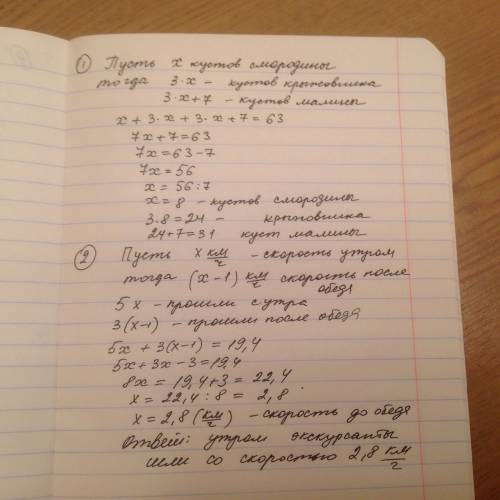 ① Пусть x кустов смородины
тогда 3·x – кустов крыжовника
3·x+7 – кустов малины
x + 3·x + 3·x + 7 = 63
7x+7=63
7x=63-7
7x=56
x = 56:7
x=8 – кустов смородины
3·8=24 – крыжовника
24+7=31 куст малины
② Пусть x км/ч – скорость утром
тогда (x-1) км/ч скорость после обеда
5x – прошли с утра
3(x-1) – прошли после обеда
5x + 3(x-1) = 19,4
5x+3x-3=19,4
8x = 19,4+3 = 22,4
x = 22,4 : 8 = 2,8
x = 2,8 (км/ч) – скорость до обеда
Ответ: утром экскурсанты
шли со скоростью 2,8 км/ч